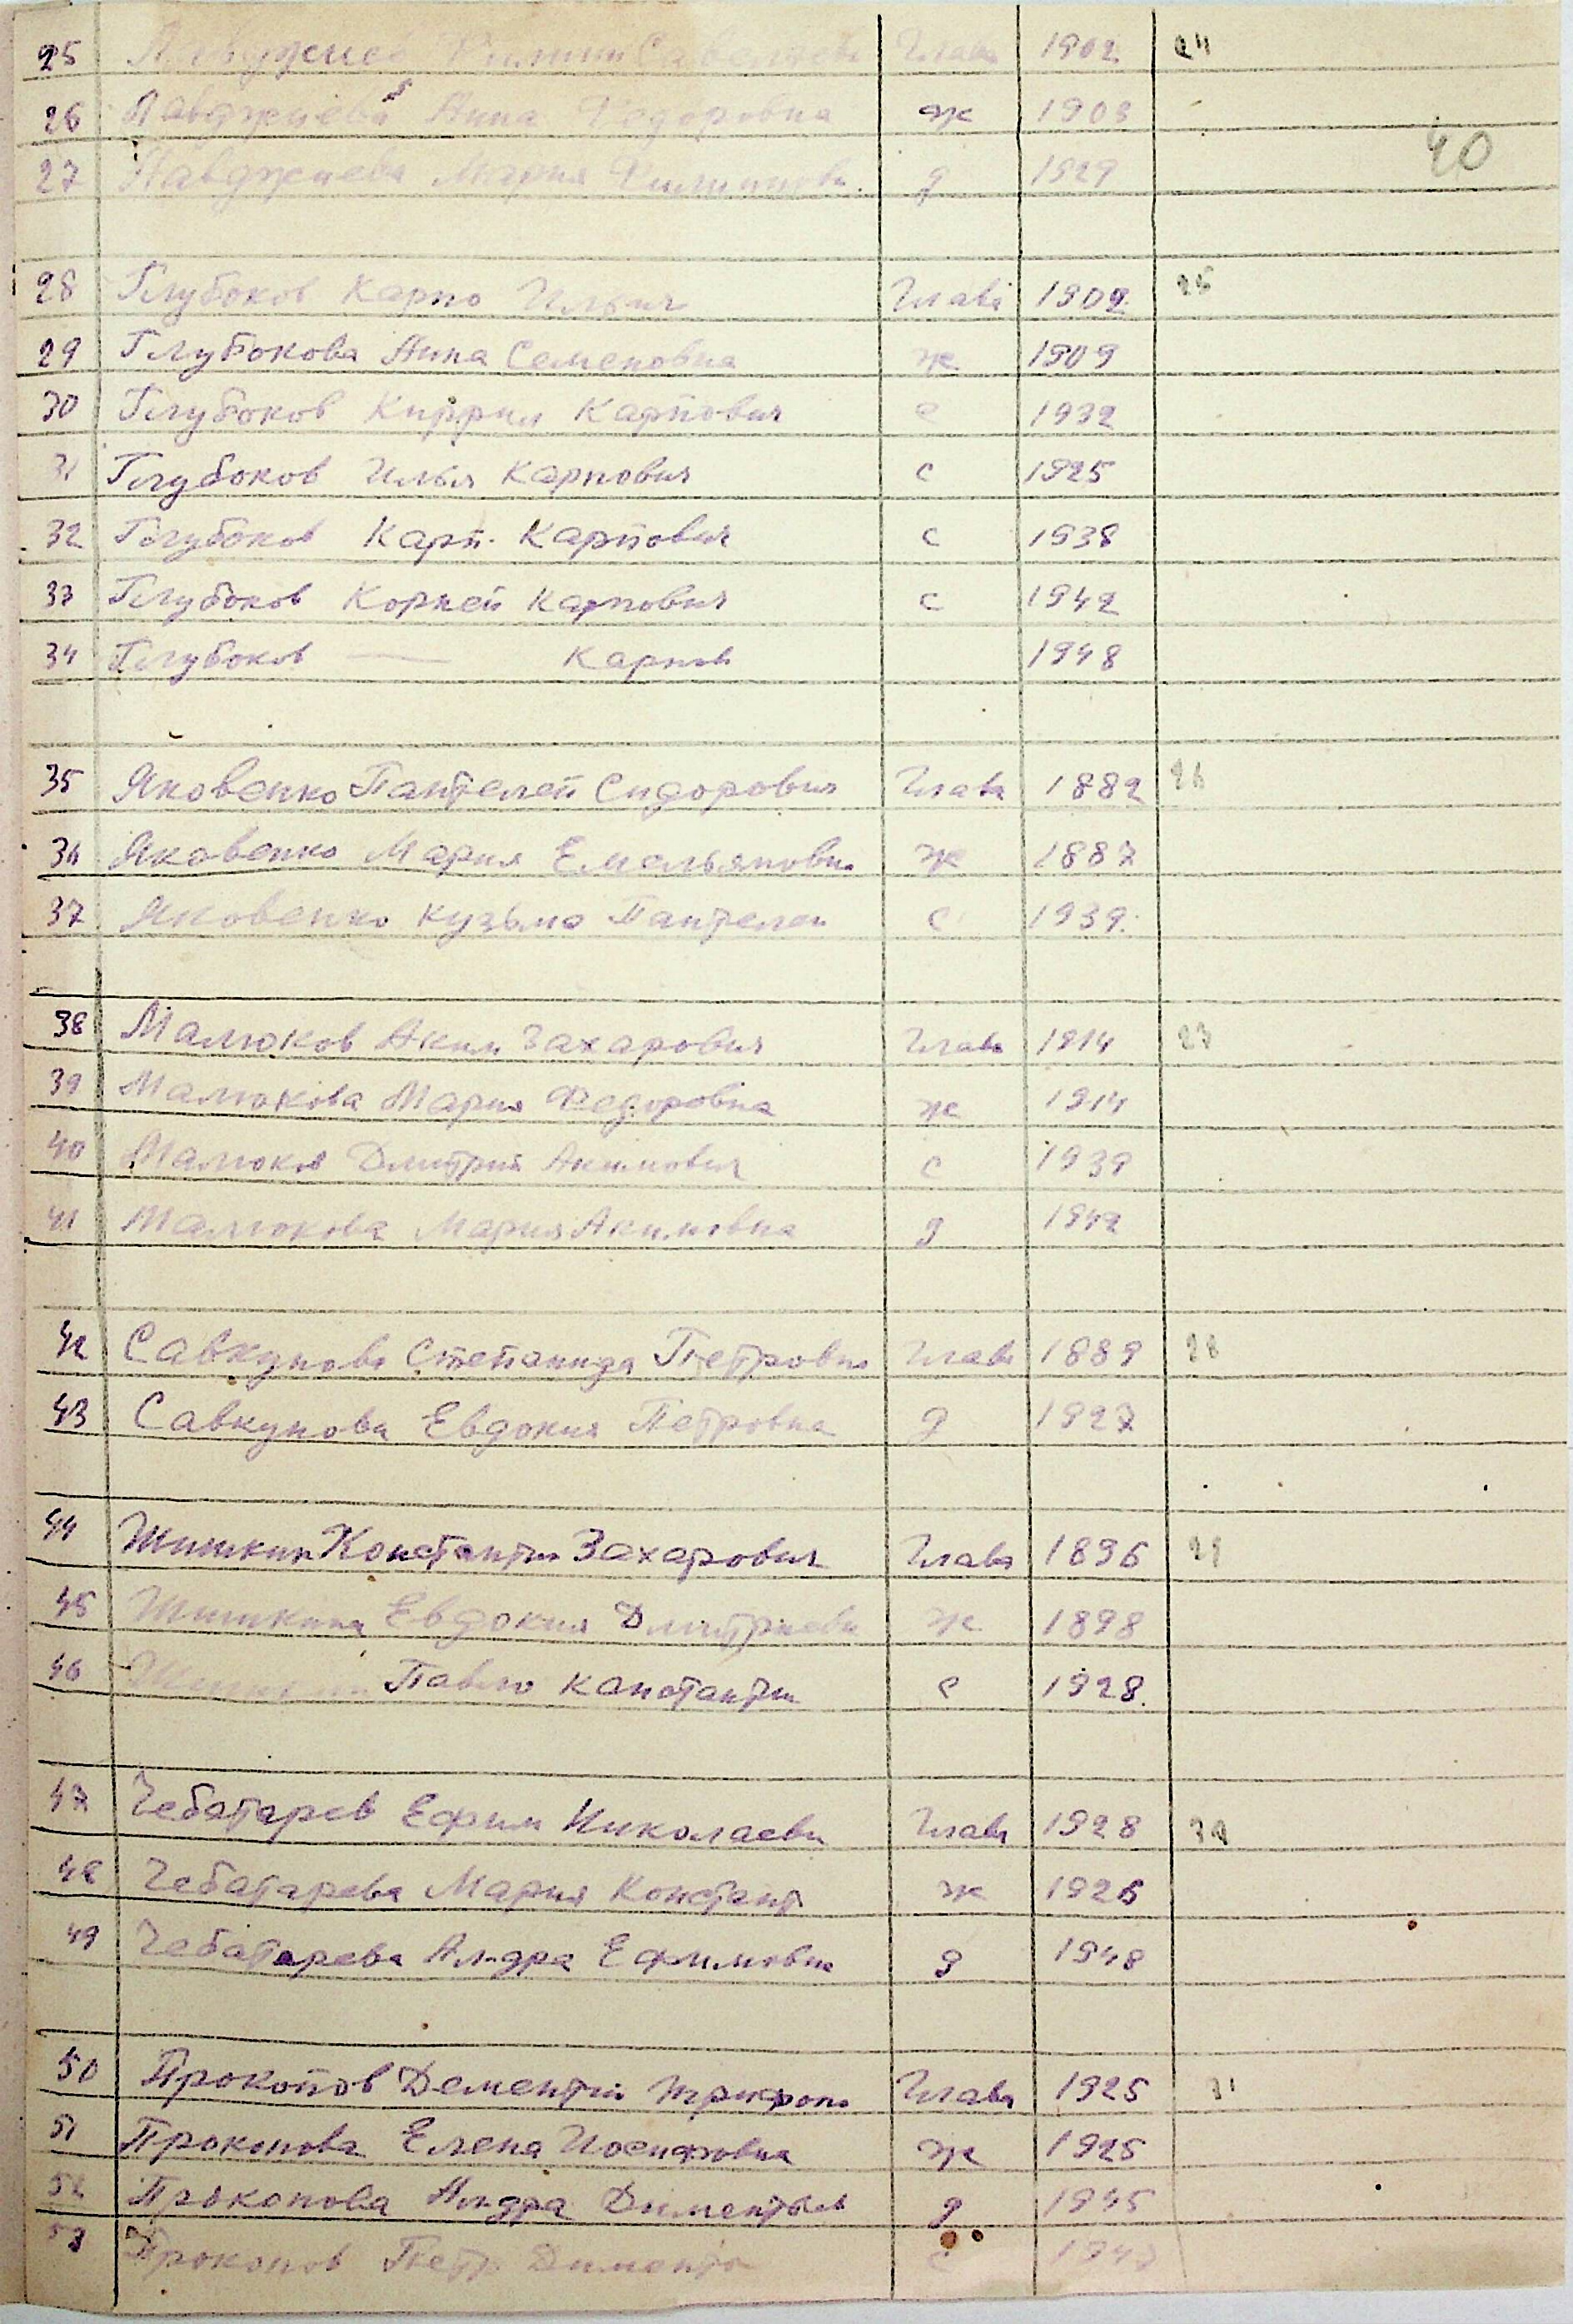 25 Филипп глава 1902 24
26 Павджиева Анна Федоровна ж 1908
40
27 Павджиева Мария Филипповн. д 1929
28 Глубоков Карпо Ильич глава 1902 25
29 Глубокова Анна Семеновна ж 1909
30 Глубоков Киррил Карпович с 1932
31 Глубоков Илья Карпович с 1925
32 Глубоков Карп. Карпович с 1938
33 Глубоков Корней Карпович с 1942
34 Глубоков — Карпов 1948
35 Яковенко Пантелей Сидорович глава 1882 26
36 Яковенко Мария Емельяновна ж 1887
37 Яковенко Кузьма Пантелеи с 1939.
38 Малюков Аким Захарович глава 1914 27
39 Малюкова Мария Федоровна ж 1914
40 Малюков Дмитрий Акимович с 1939
41 Малюкова Мария Акимовна д 1942
42 Савкунова Степанида Петровна глава 1889 28
43 Савкунова Евдокия Петровна д 1927
44 Шишкин Константин Захарович глава 1896 29
45 Шишкина Евдокия Дмитриевн ж 1898
46 Павло Канстантин с 1928.
47 Чебатарев Ефим Николаеви глава 1928 30
48 Чебатарева Мария Констант ж 1926
49 Чебатарева Ал-дра Ефимовна д 1948
50 Прокопов Дементий Трифоно глава 1925 31
51 Прокопова Елена Иосифовна ж 1925
52 Прокопова Ал-дра Диментьев д 1945
53 Прокопов Петр Дименто с